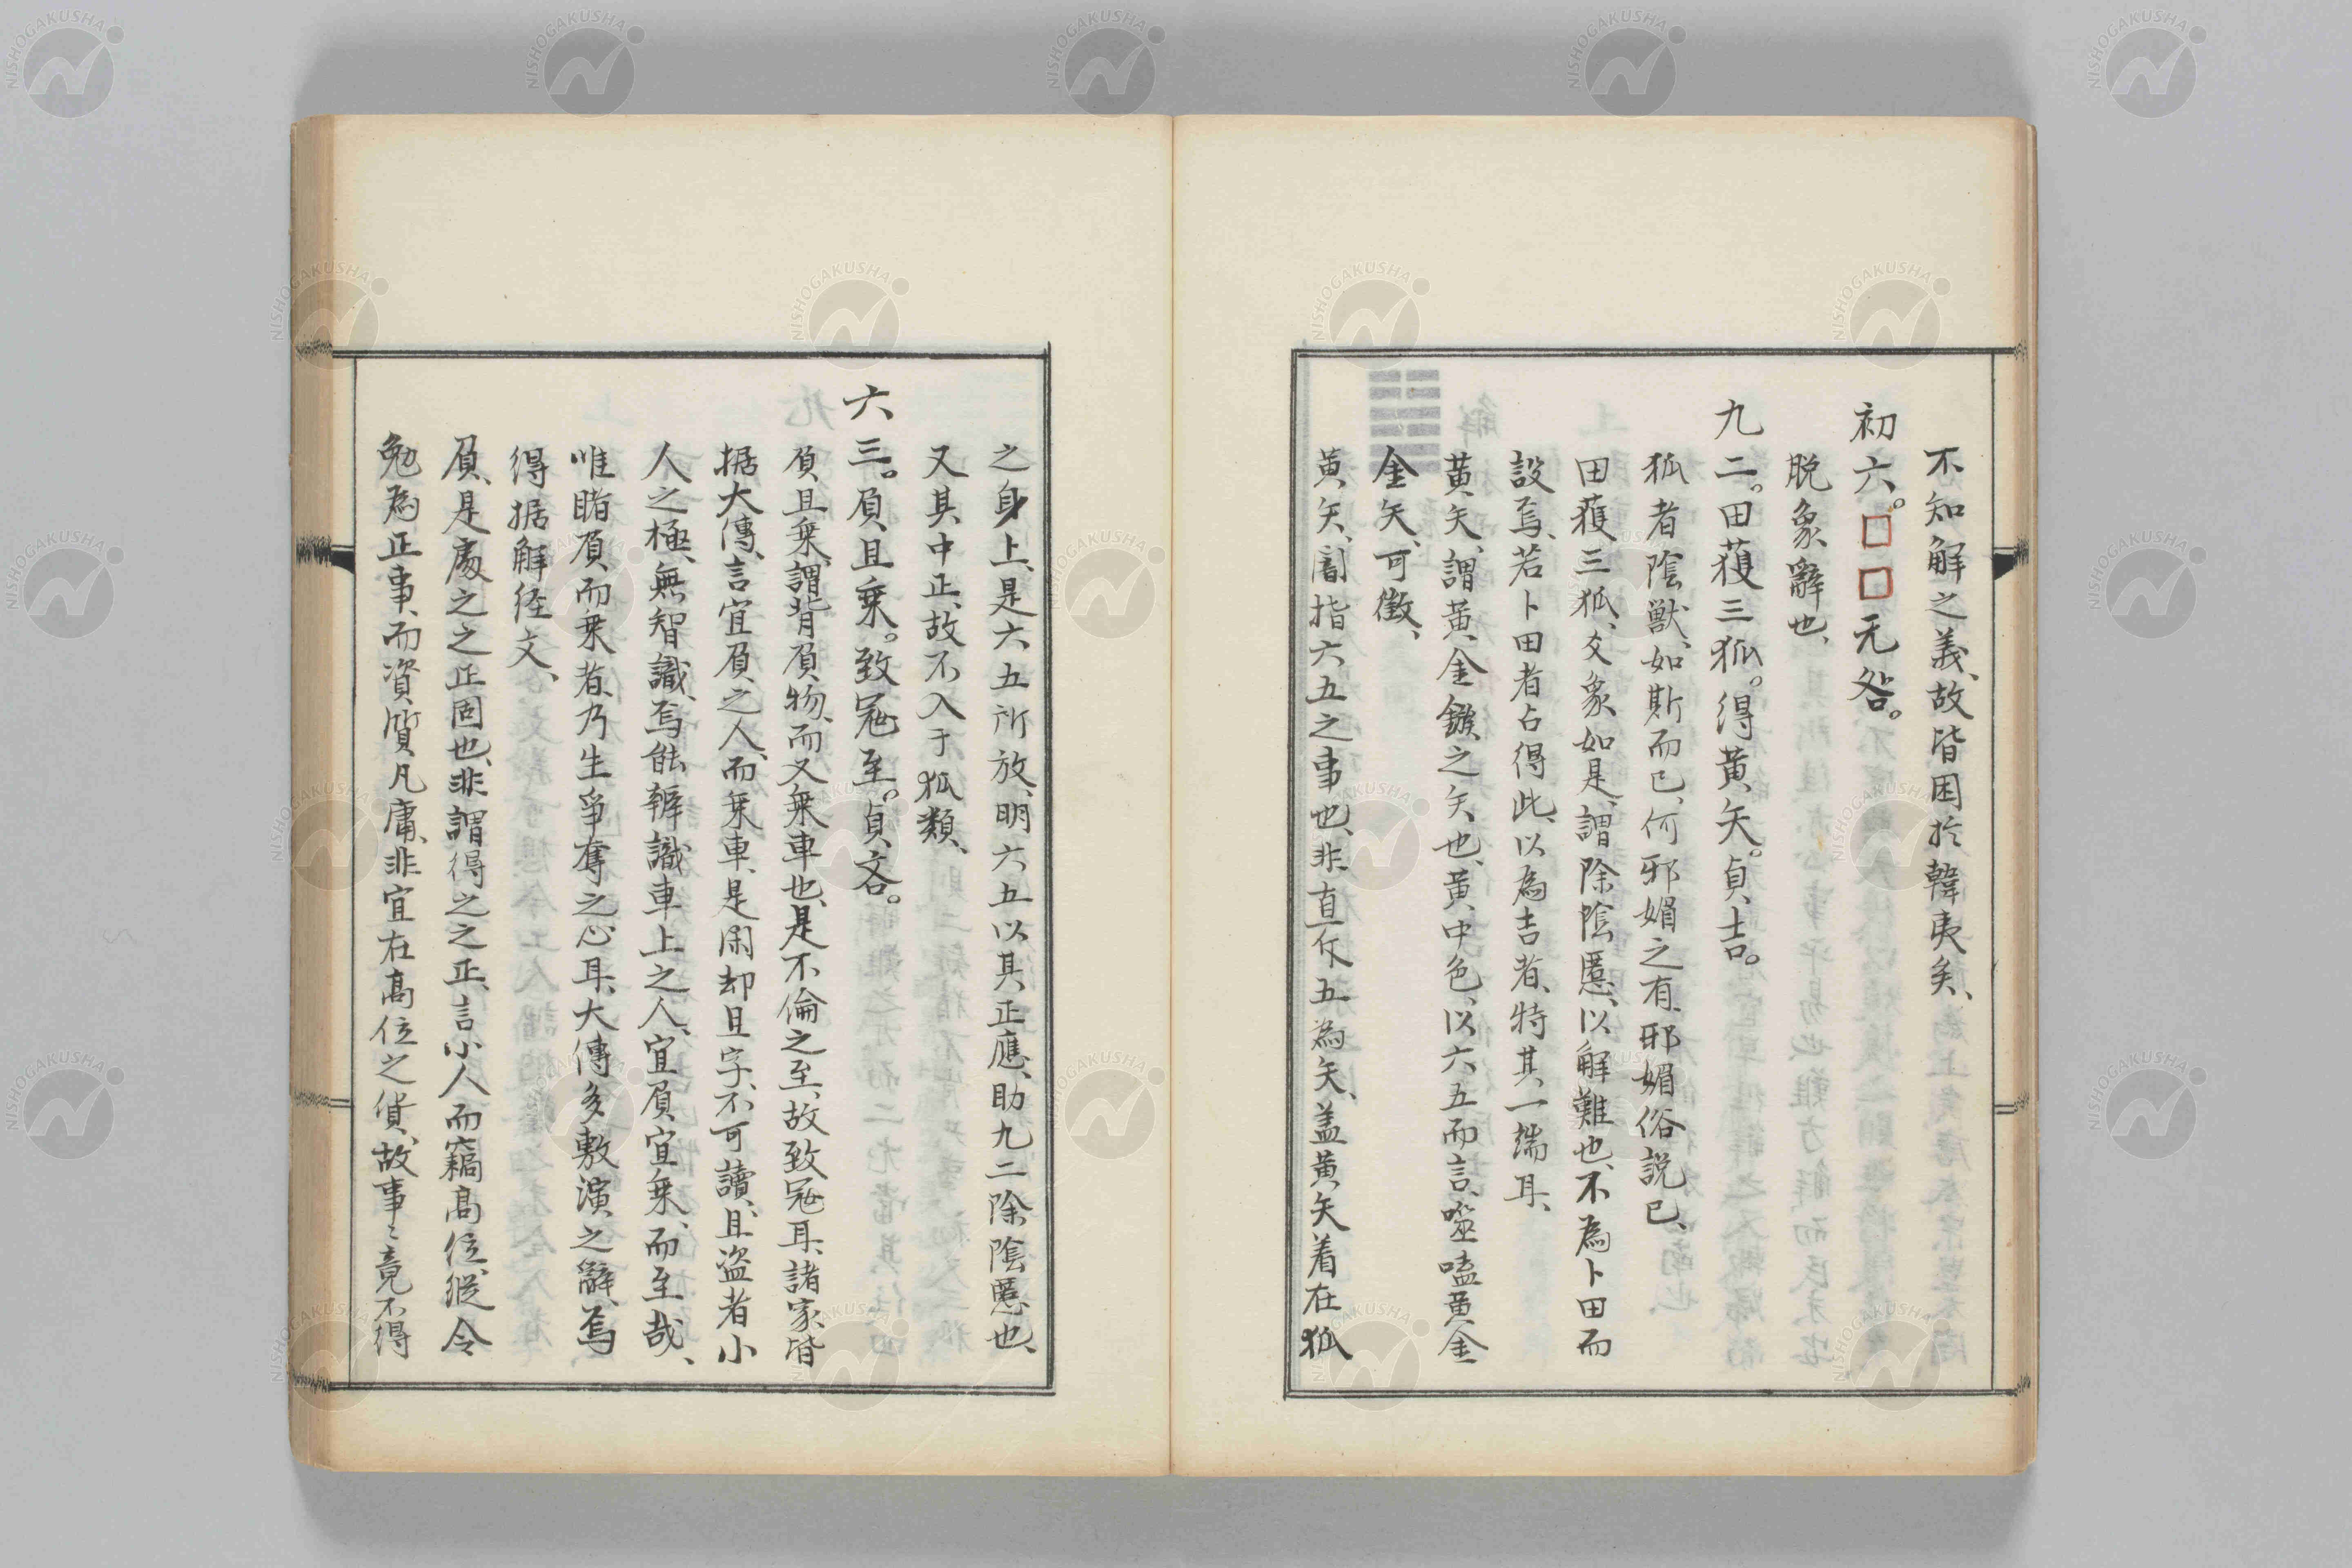 不知解之義、故皆困於韓夷矣、
初六。□□无咎。
脱象辭也、
九二。田獲三狐。得黃矢。貞吉。
狐者陰獸、如斯而已、何邪媚之有、邪媚俗説已、
田獲三狐、爻象如是、謂除陰慝、以解難也、不為卜田而
設焉、若卜田者占得此、以為吉者、特其一端耳、
黃矢、謂黃金鏃之矢也、黃中色、以六五而言、噬嗑黃金
金矢、可徵、
黃矢、闇指六五之事也、非直斥五為矢、盖黃矢着在狐
之身上、是六五所放、明六五以其正應、助九二除陰慝也、
又其中正、故不入于狐類、
六三。負且乗。致冦至。貞吝。
負且乗、謂背負物、而又乗車也、是不倫之至、故致冦耳、諸家皆
据大傳、言宜負之人、而乗車、是閑却且字、不可讀、且盗者小
人之極、無智識、焉能辨識車上之人、宜負宜乗、而至哉、
唯睹負而乗者、乃生爭奪之心耳、大傳多敷演之辭、焉
得据解経文、
負、是處之之正固也、非謂得之之正、言小人而竊高位、縱令
勉為正事、而資質凡庸、非宜在高位之貨、故事〻竟不得
NISHOGAKUSHA